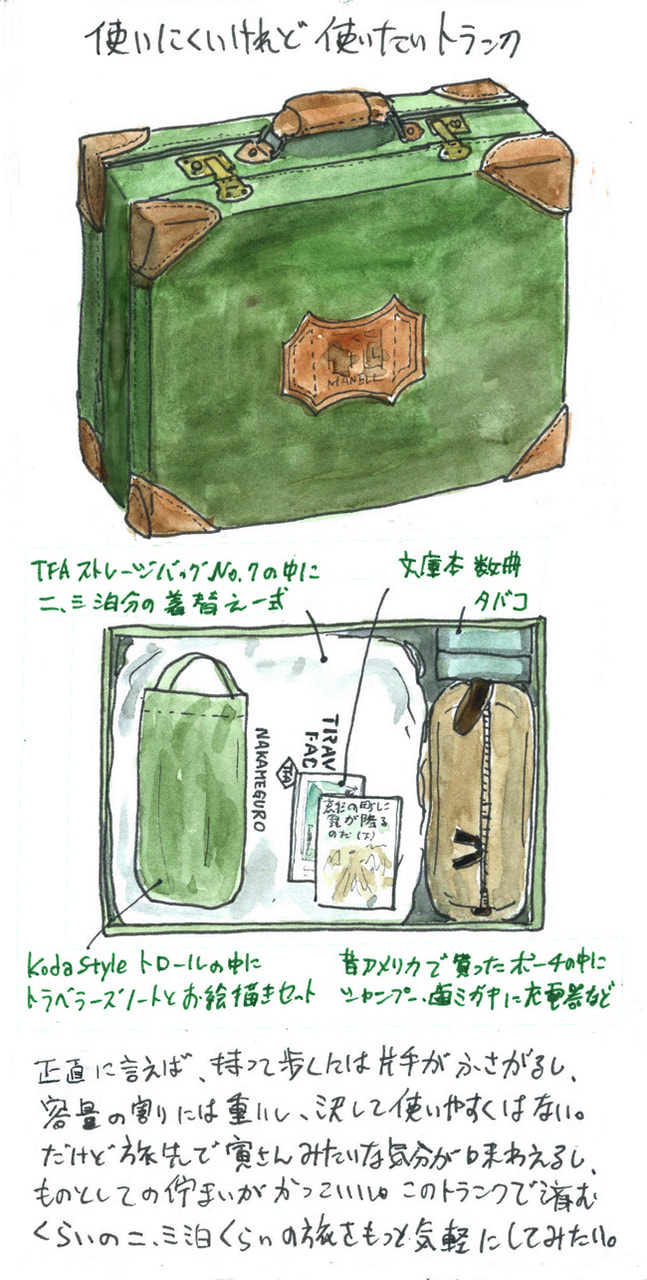 使いにくいけれど 使いたいトランク
MANELL
TFA ストレージバッグ No.7の中に
二、三泊分の着替え一式
文庫本 数冊
タバコ
TRAV
FAC
TFA
NAKAMEGURO
町に
が降る
のだ(下)
Koda Style トロールの中に
トラベラーズノートとお絵描きセット
昔アメリカで買ったポーチの中に
シャンプー、歯ミガキに充電器など
正直に言えば、持って歩くには片手がふさがるし、
容量の割りには重いし、決して使いやすくはない。
だけど旅先で寅さんみたいな気分が味わえるし、
ものとしての佇まいがかっこいい。このトランクで済む
くらいの二、三泊くらいの旅をもっと気軽にしてみたい。